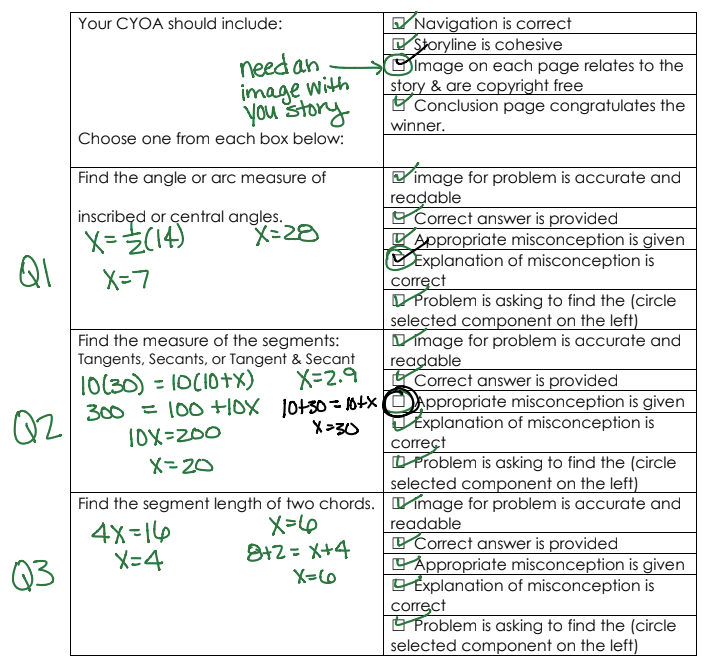 Your CYOA should include:
need an
image with
you story
Choose one from each box below:
Navigation is correct
Storyline is cohesive
Image on each page relates to the
story & are copyright free
Conclusion page congratulates the
winner.
Find the angle or arc measure of
inscribed or central angles.
X = 1/2(14)
X=28
X=7
Q1
image for problem is accurate and
readable
Correct answer is provided
Appropriate misconception is given
Explanation of misconception is
correct
Problem is asking to find the (circle
selected component on the left)
Find the measure of the segments:
Tangents, Secants, or Tangent & Secant
10(30) = 10(10+x)
X=2.9
300 = 100 +10X
10+30 = 10+x
10X=200
X=30
X=20
Q2
image for problem is accurate and
readable
Correct answer is provided
Appropriate misconception is given
Explanation of misconception is
correct
Problem is asking to find the (circle
selected component on the left)
Find the segment length of two chords.
4X=16
X=6
X=4
8+2 = X+4
X=6
Q3
image for problem is accurate and
readable
Correct answer is provided
Appropriate misconception is given
Explanation of misconception is
correct
Problem is asking to find the (circle
selected component on the left)